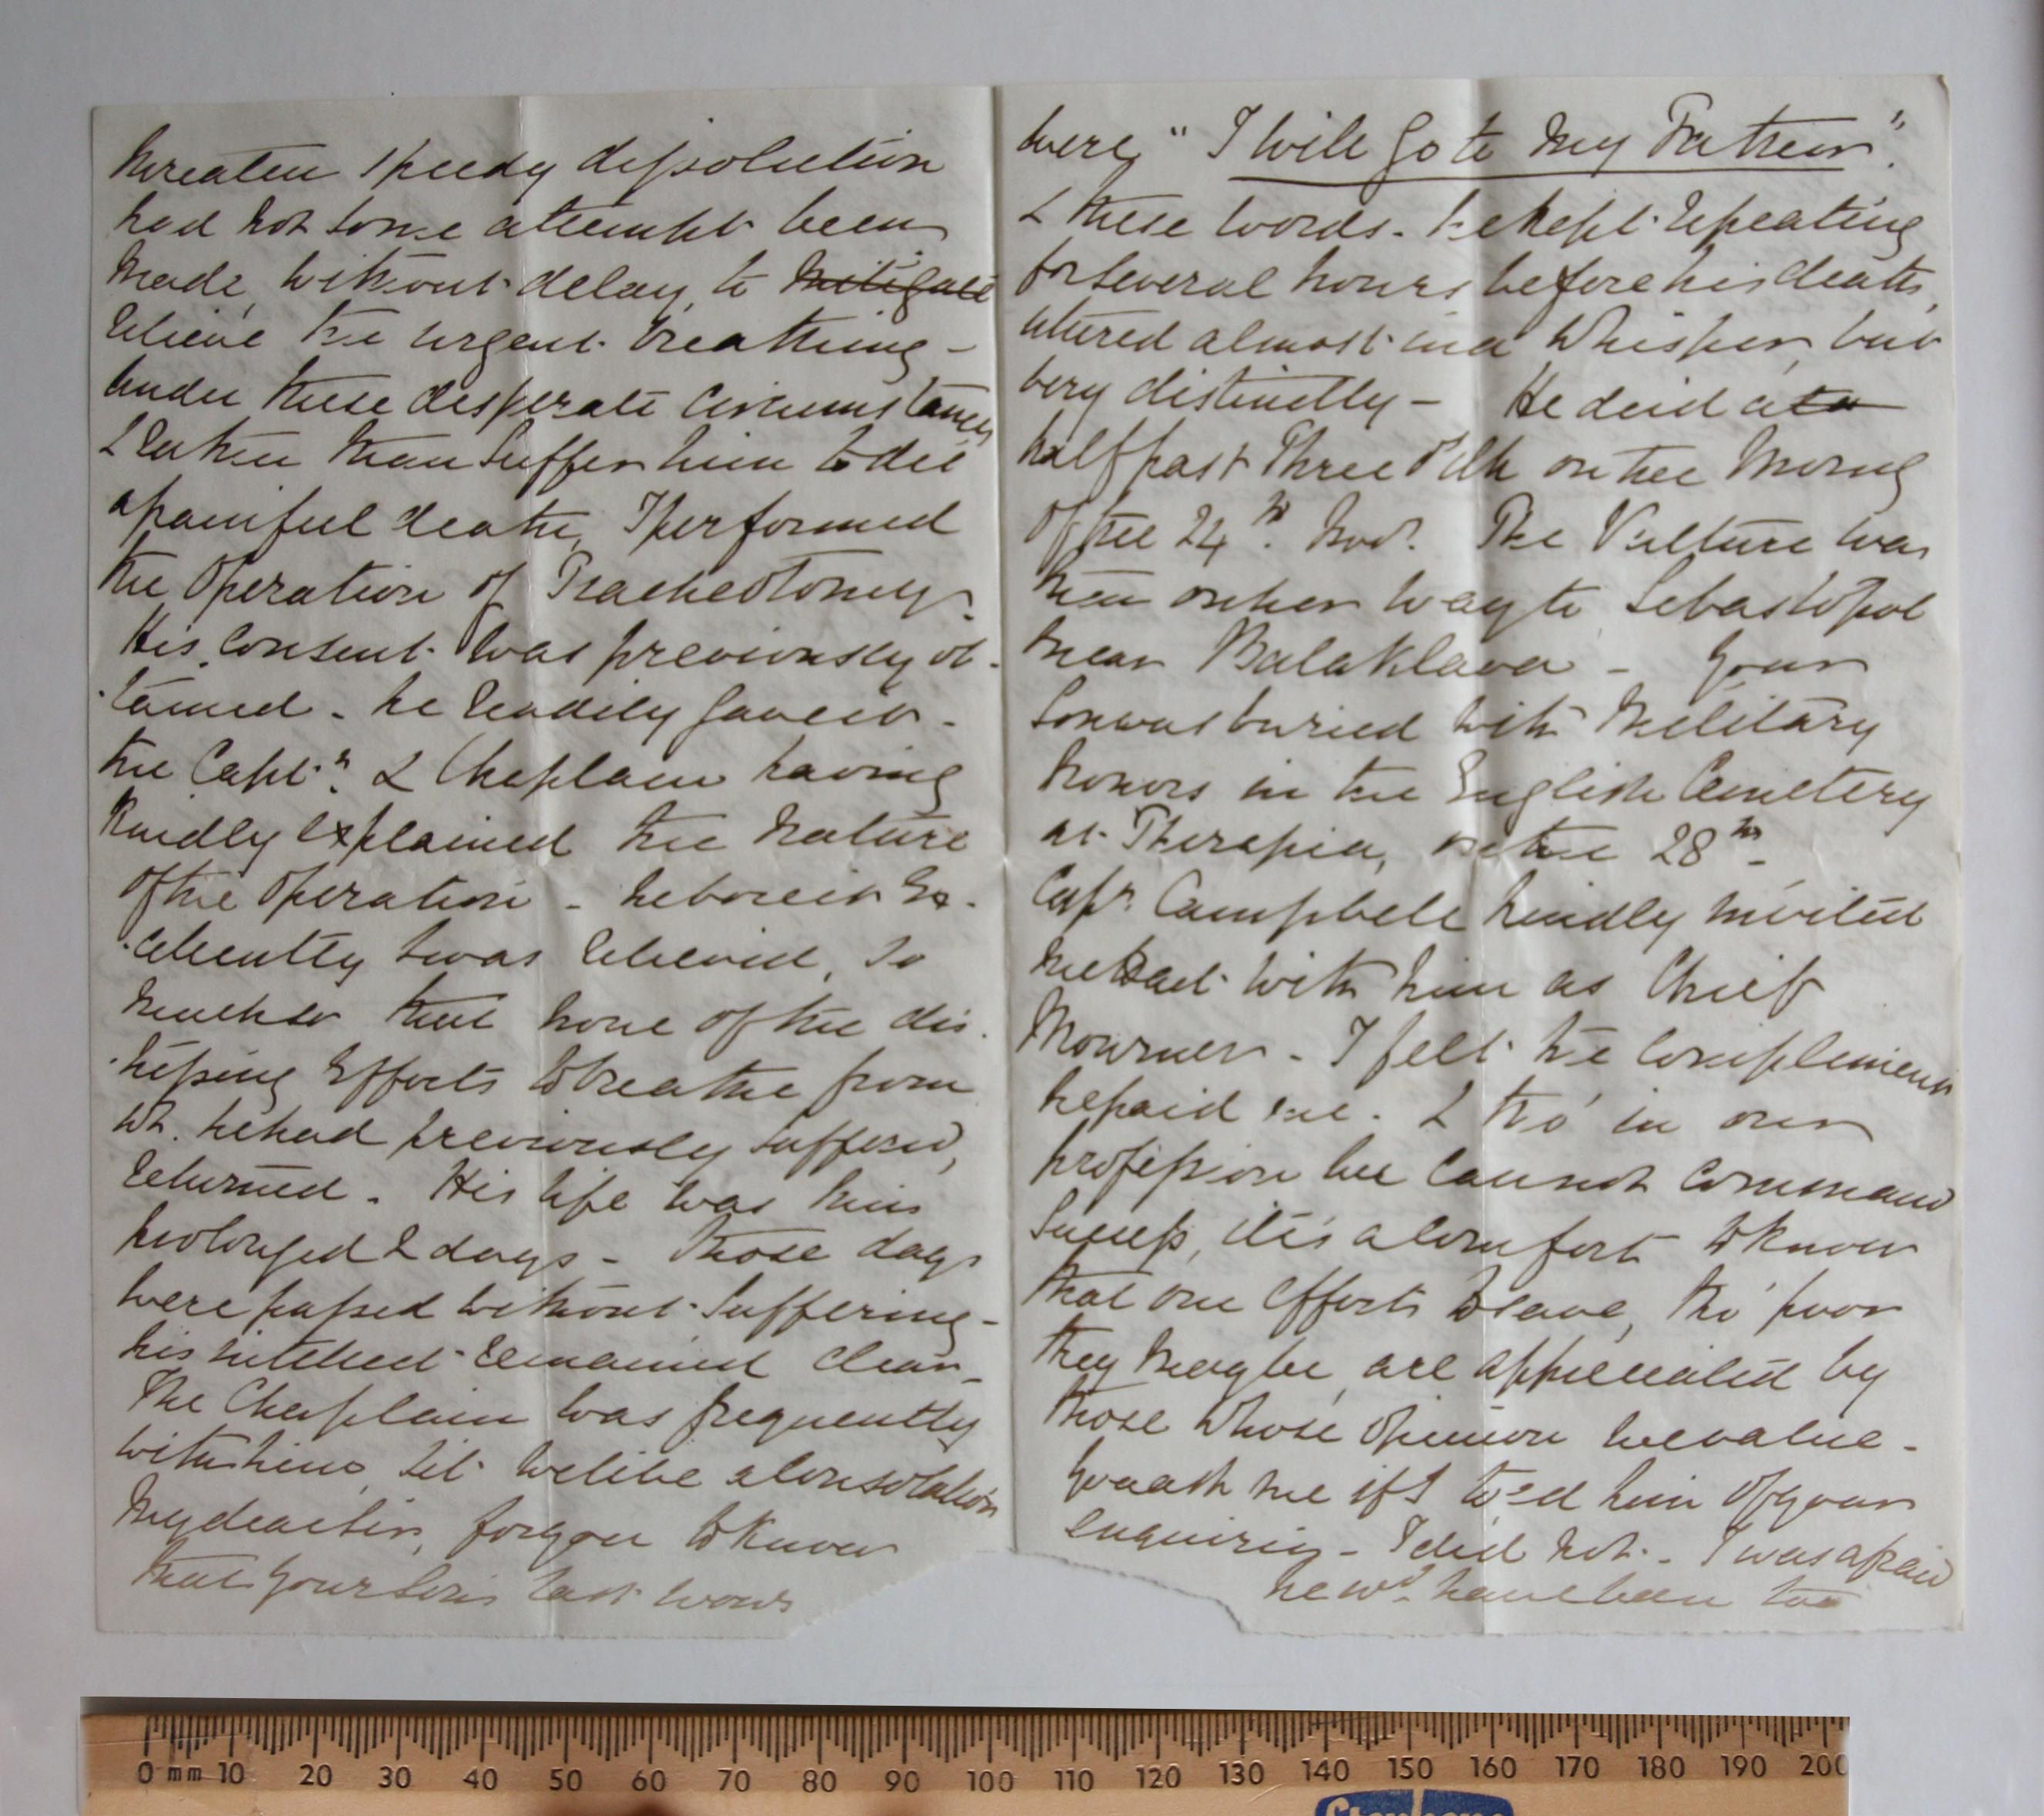 threaten speedy dissolution
had not some attempt been
made, without delay, to mitigate
relieve the urgent breathing -
under these desperate circumstances
& rather than suffer him to die
a painful death, I performed
the operation of Tracheotomy.
His consent was previously ob-
-tained - he readily gave it -
the Captn. & Chaplain having
kindly explained the nature
of the operation - he bore it Ex-
-cellently & was relieved, so
much so that none of the dis-
-tressing efforts to breathe from
wh. he had previously suffered,
returned. His life was thus
prolonged 2 days - Those days
were passed without suffering -
his intellect remained clear -
The Chaplain was frequently
with him, & it will be a consolation
my dear Sir, for you to know
that your Son's last words
were, "I will go to my Father".
& these words - he kept repeating
for several hours before his death,
uttered almost in a whisper, but
very distinctly - He died at
half past Three on the Morng
of the 24th. Novr. The Vulture was
then on her way to Sebastopol
near Balaklava - Your
Son was buried with Military
honors in the English Cemetery
at Therapia, on the 28th -
Capn. Campbell kindly invited
me to act with him as Chief
Mourner - I felt the compliment
he paid me. & tho' in our
profession we cannot command
success, it is a comfort to know
that our efforts to save, tho' poor
they may be, are appreciated by
those whose opinion we value -
You ask me if I told him of your
enquiries - I did not - I was afraid
he wd. have been too
0 mm 10 20 30 40 50 60 70 80 90 100 110 120 130 140 150 160 170 180 190 200